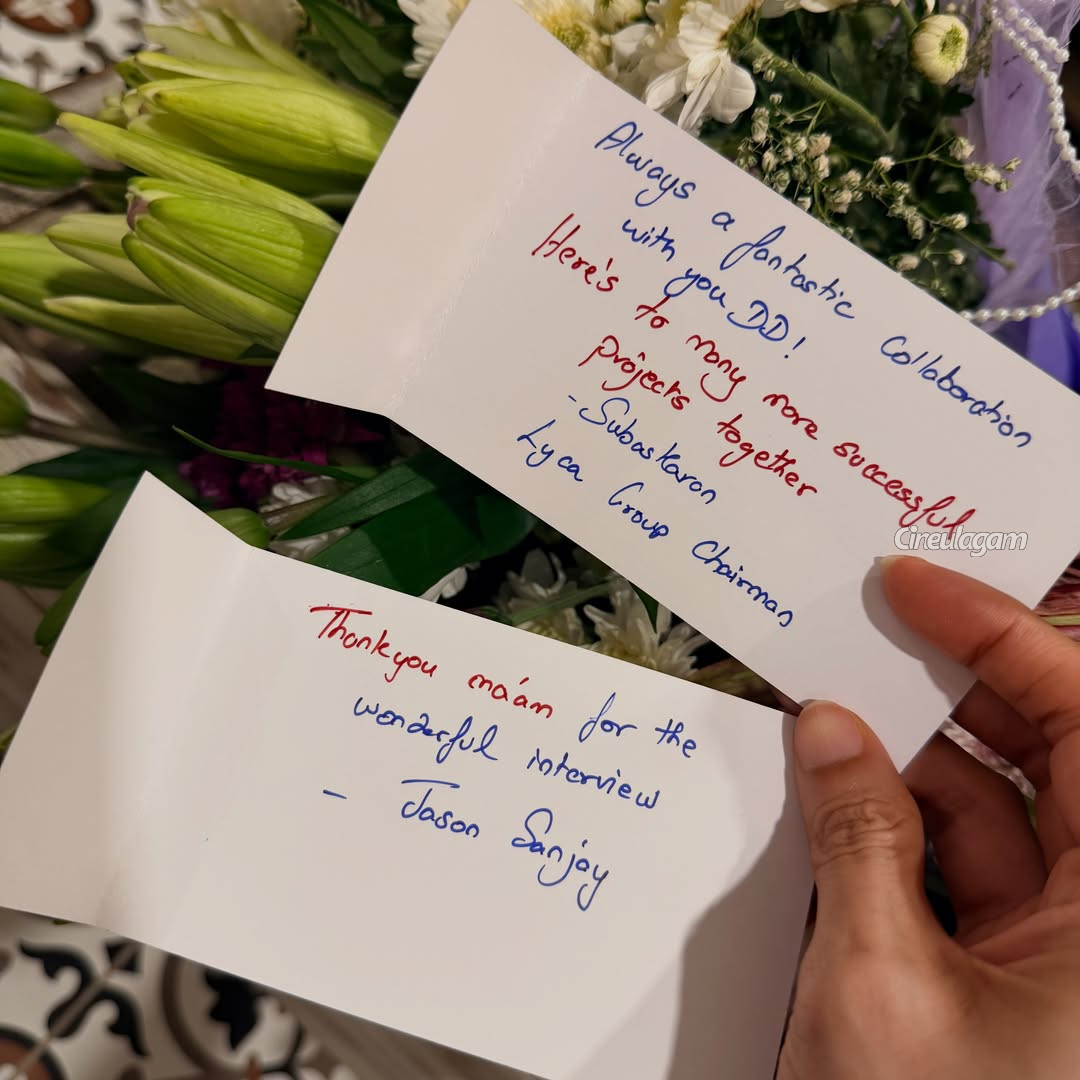 Always a fantastic Collaboration
with you DD!
Here's to many more successful
projects together
- Subaskaran
Lyca Group Chairman
Cineulagam
Thankyou ma'am for the
wonderful interview
- Jason Sanjay